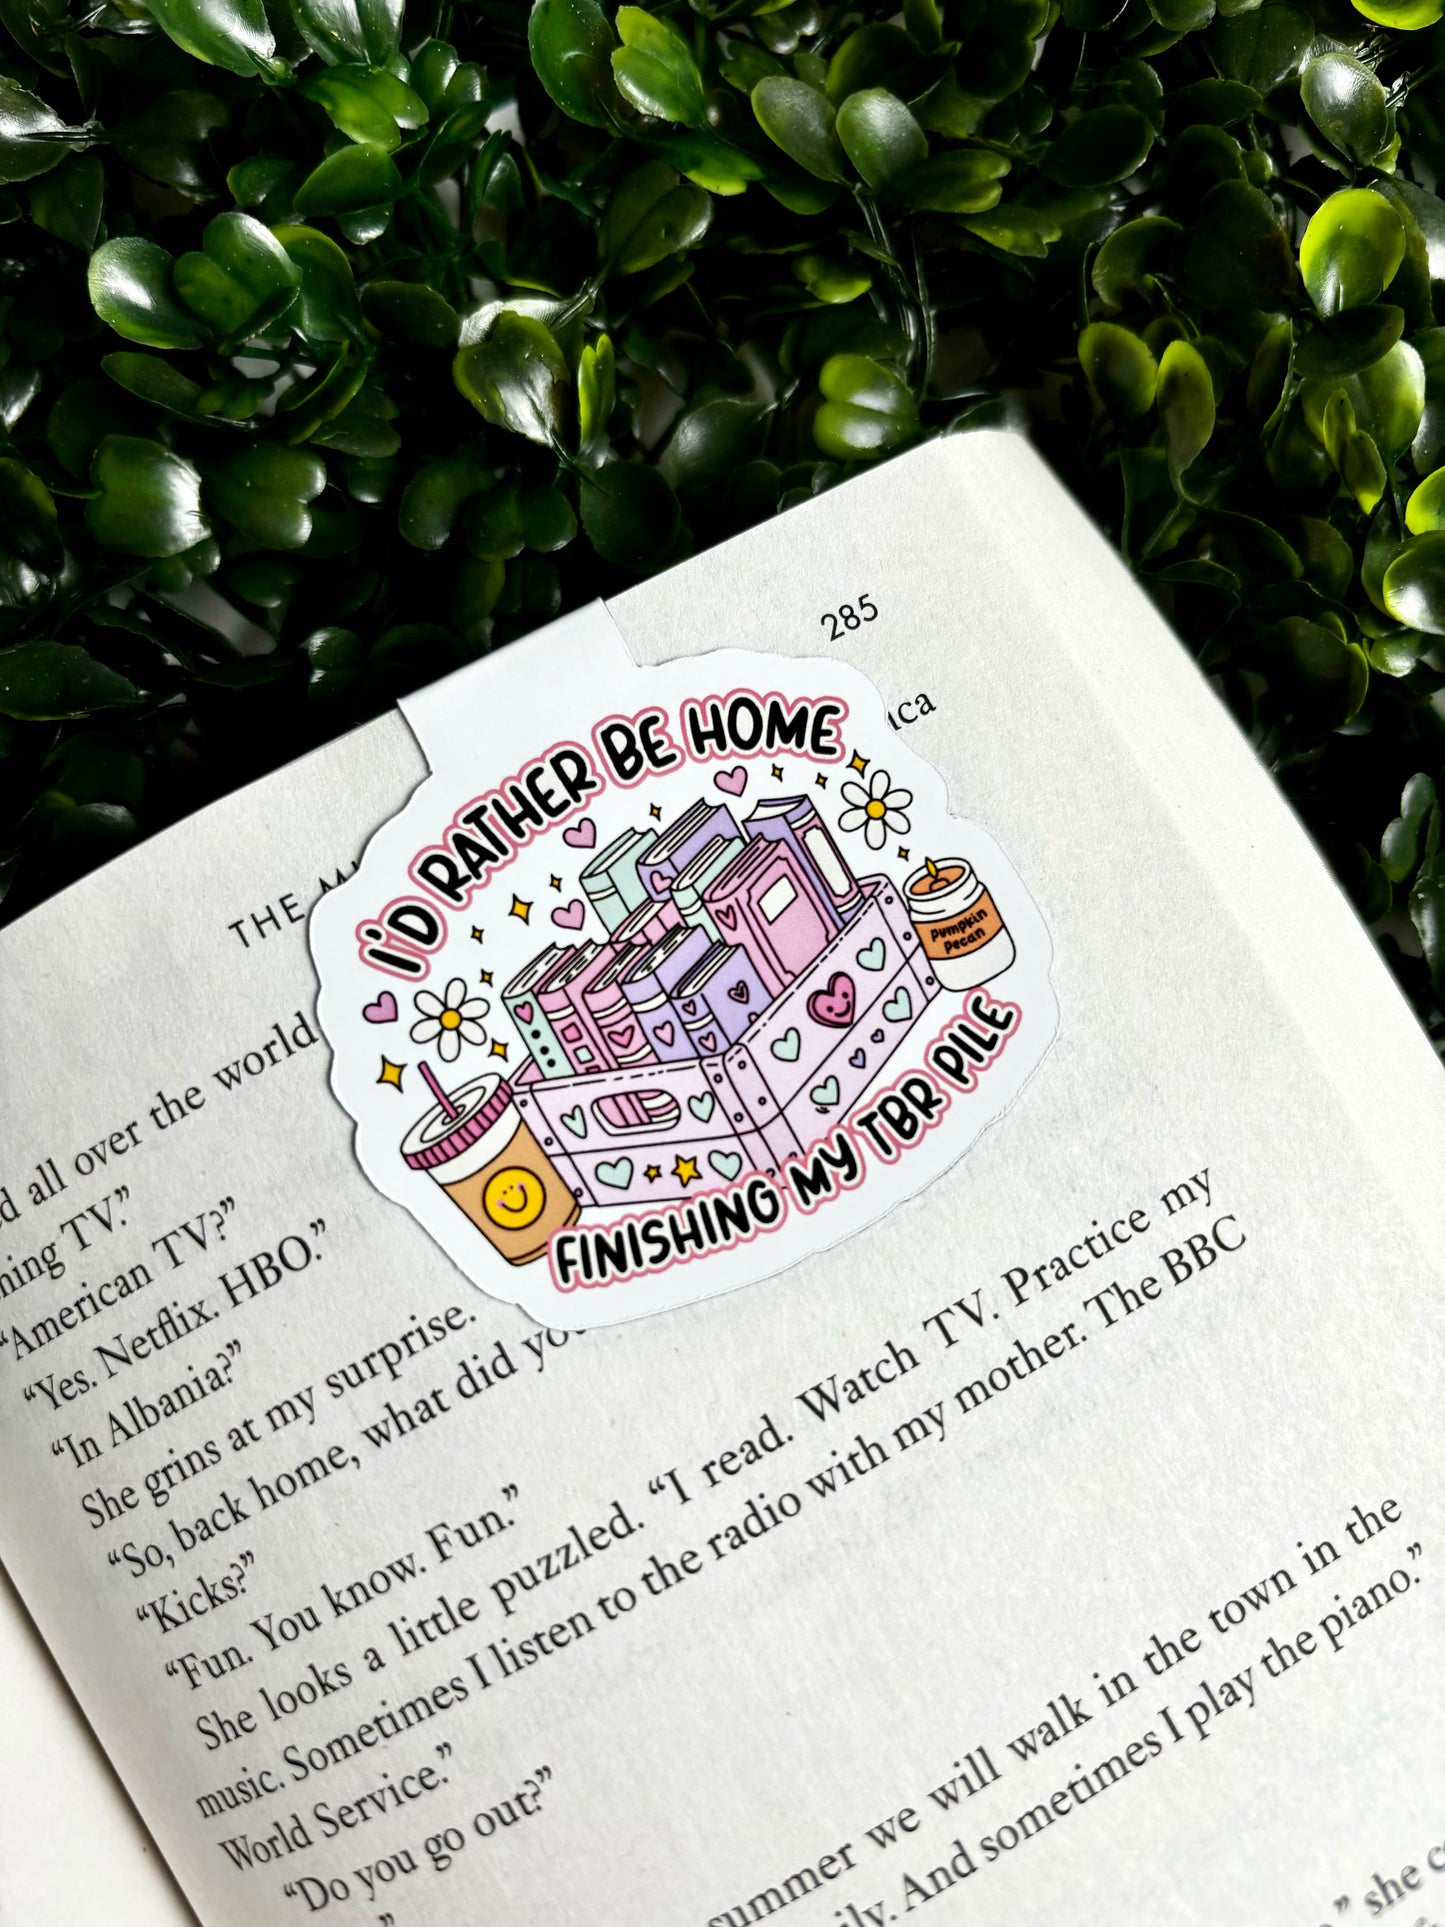 285
THE
I'D RATHER BE HOME
Pumpkin
Pecan
FINISHING MY TBR PILE
all over the world
TV."
"American TV?"
"Yes. Netflix. HBO."
"In Albania?"
She grins at my surprise.
"So, back home, what did
"Kicks?"
"Fun. You know. Fun."
She looks a little puzzled. "I read. Watch TV. Practice my
music. Sometimes I listen to the radio with my mother. The BBC
World Service."
"Do you go out?"
summer we will walk in the town in the
And sometimes I play the piano."
she